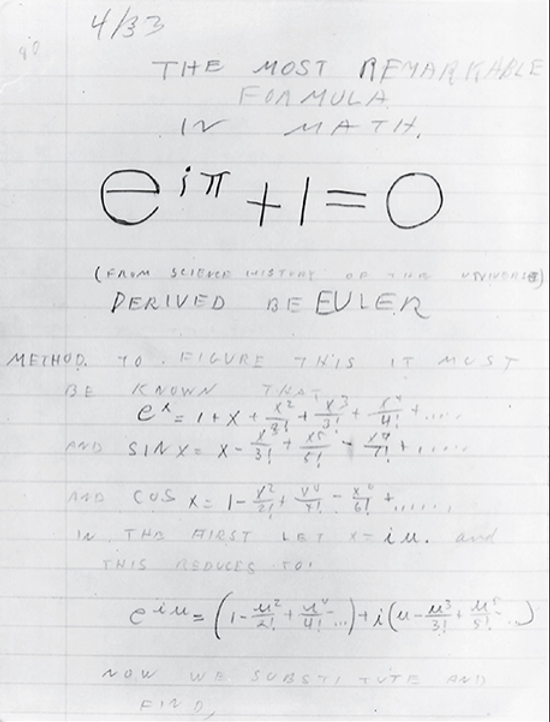 4/33
THE MOST REMARKABLE
FORMULA
IN MATH.
e^{iπ} + 1 = 0
(FROM SCIENCE HISTORY OF THE UNIVERSE)
DERIVED BE EULER
METHOD. TO FIGURE THIS IT MUST
BE KNOWN THAT
e^x = 1 + x + x²/2! + x³/3! + x⁴/4! + .....
AND SIN X = X - x³/3! + x⁵/5! - x⁷/7! + .....
AND COS X = 1 - x²/2! + x⁴/4! - x⁶/6! + ......
IN THE FIRST LET x = iu. and
THIS REDUCES TO:
e^{iu} = (1 - u²/2! + u⁴/4! ...) + i(u - u³/3! + u⁵/5! ...)
NOW WE SUBSTITUTE AND
FIND,